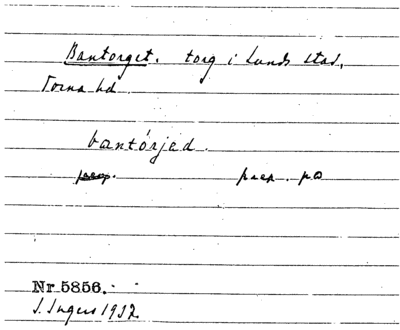 Bantorget. torg i Lunds stad,
Torna hd
bantórjed.
prep. prep. på
Nr 5856.
S. Ingers 1932